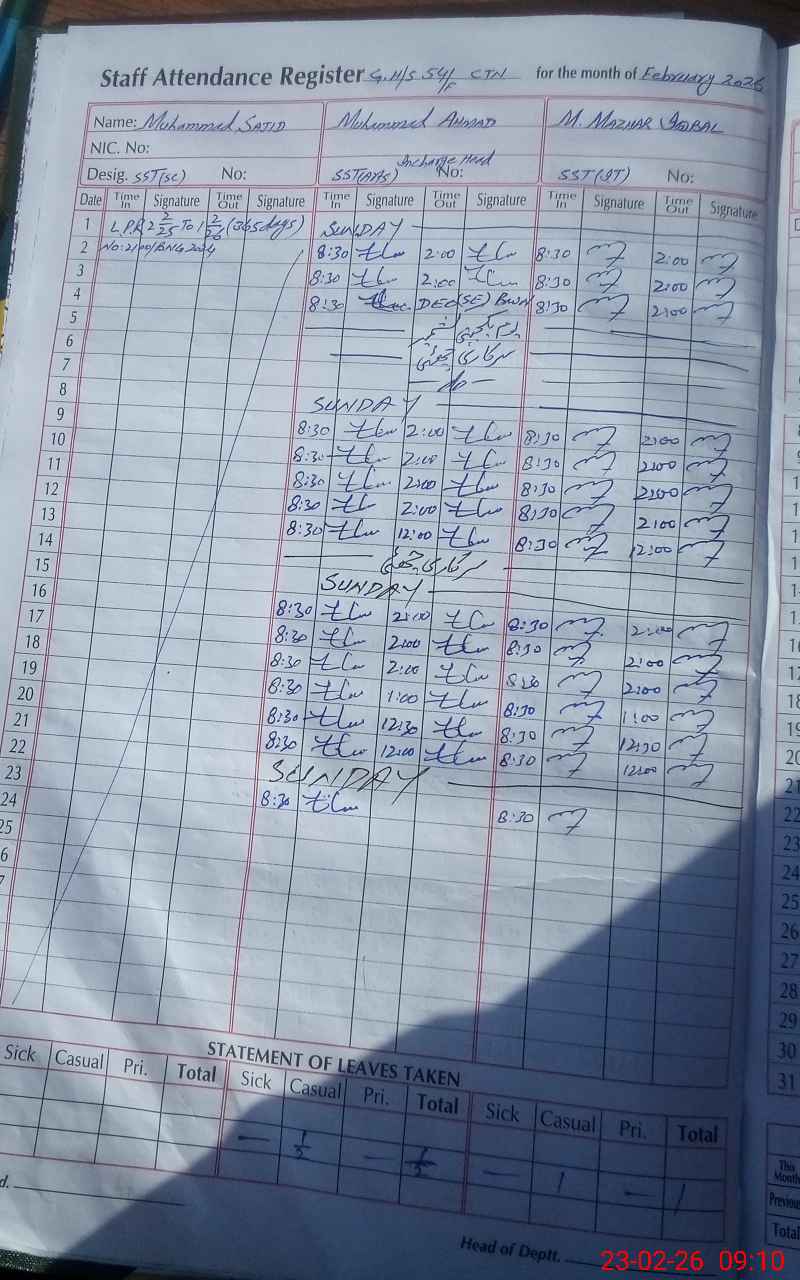 Staff Attendance Register G.H/S 54/F CTN for the month of February 2026
Name: Muhammad SAJID Muhammad AHMAD M. MAZHAR IQBAL
NIC. No:
Incharge Head
Desig. SST(SC) No: SST(Arts) No: SST(IT) No:
Date Time In Signature Time Out Signature Time In Signature Time Out Signature Time In Signature Time Out Signature
1 L.P.R 2 2/25 To 1 2/26 (365 days) SUNDAY
2 8:30 2:00 8:30 2:00
3 8:30 2:00 8:30 2:00
4 8:30 DEO(SE) BWN 8:30 2:00
5
6 سرکاری چھٹی
7 -do-
8 SUNDAY
9 8:30 2:00 8:30 2:00
10 8:30 2:00 8:30 2:00
11 8:30 2:00 8:30 2:00
12 8:30 2:00 8:30 2:00
13 8:30 12:00 8:30 12:00
14 سرکاری چھٹی
15 SUNDAY
16 8:30 2:00 8:30 2:00
17 8:30 2:00 8:30 2:00
18 8:30 2:00 8:30 2:00
19 8:30 1:00 8:30 1:00
20 8:30 12:30 8:30 12:30
21 8:30 12:00 8:30 12:00
22 SUNDAY
23 8:30 8:30
24
25
6
7
STATEMENT OF LEAVES TAKEN
Sick Casual Pri. Total Sick Casual Pri. Total Sick Casual Pri. Total
— 1/2 — 1/2 — 1 — 1
d.
Head of Deptt.
21
22
23
24
25
26
27
28
29
30
31
This Month
Previous
Total
23-02-26 09:10